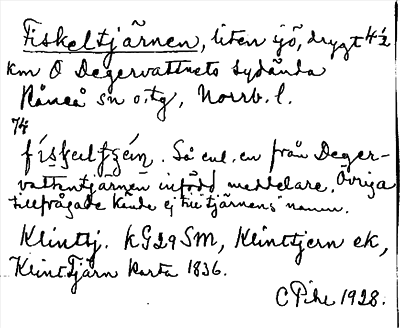 Fiskeltjärnen, liten sjö, drygt 4½
km O Degervattnets sydända
Råneå sn o. tg, Norrb. l.
74
Så enl. en från Deger-
vattentjärnen infödd meddelare. Övriga
tillfrågade kände ej till tjärnens namn.
Klinttj. KG29SM, Klinttjern ek,
KlintTjärn Karta 1836.
C Pihl 1928.